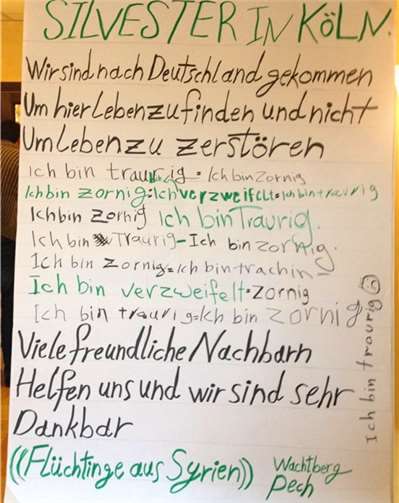 SILVESTER IN KÖLN.
Wir sind nach Deutschland gekommen
Um hier Leben zu finden und nicht
Um Leben zu zerstören
Ich bin traurig • Ich bin zornig
Ich bin zornig • Ich verzweifelt • Ich bin traurig
Ich bin zornig Ich bin Traurig.
Ich bin Traurig - Ich bin zornig.
Ich bin zornig • Ich bin trachin -
Ich bin verzweifelt • zornig
Ich bin traurig = Ich bin zornig
Ich bin traurig
Viele freundliche Nachbarn
Helfen uns und wir sind sehr
Dankbar
((Flüchtinge aus Syrien)) Wachtberg
Pech